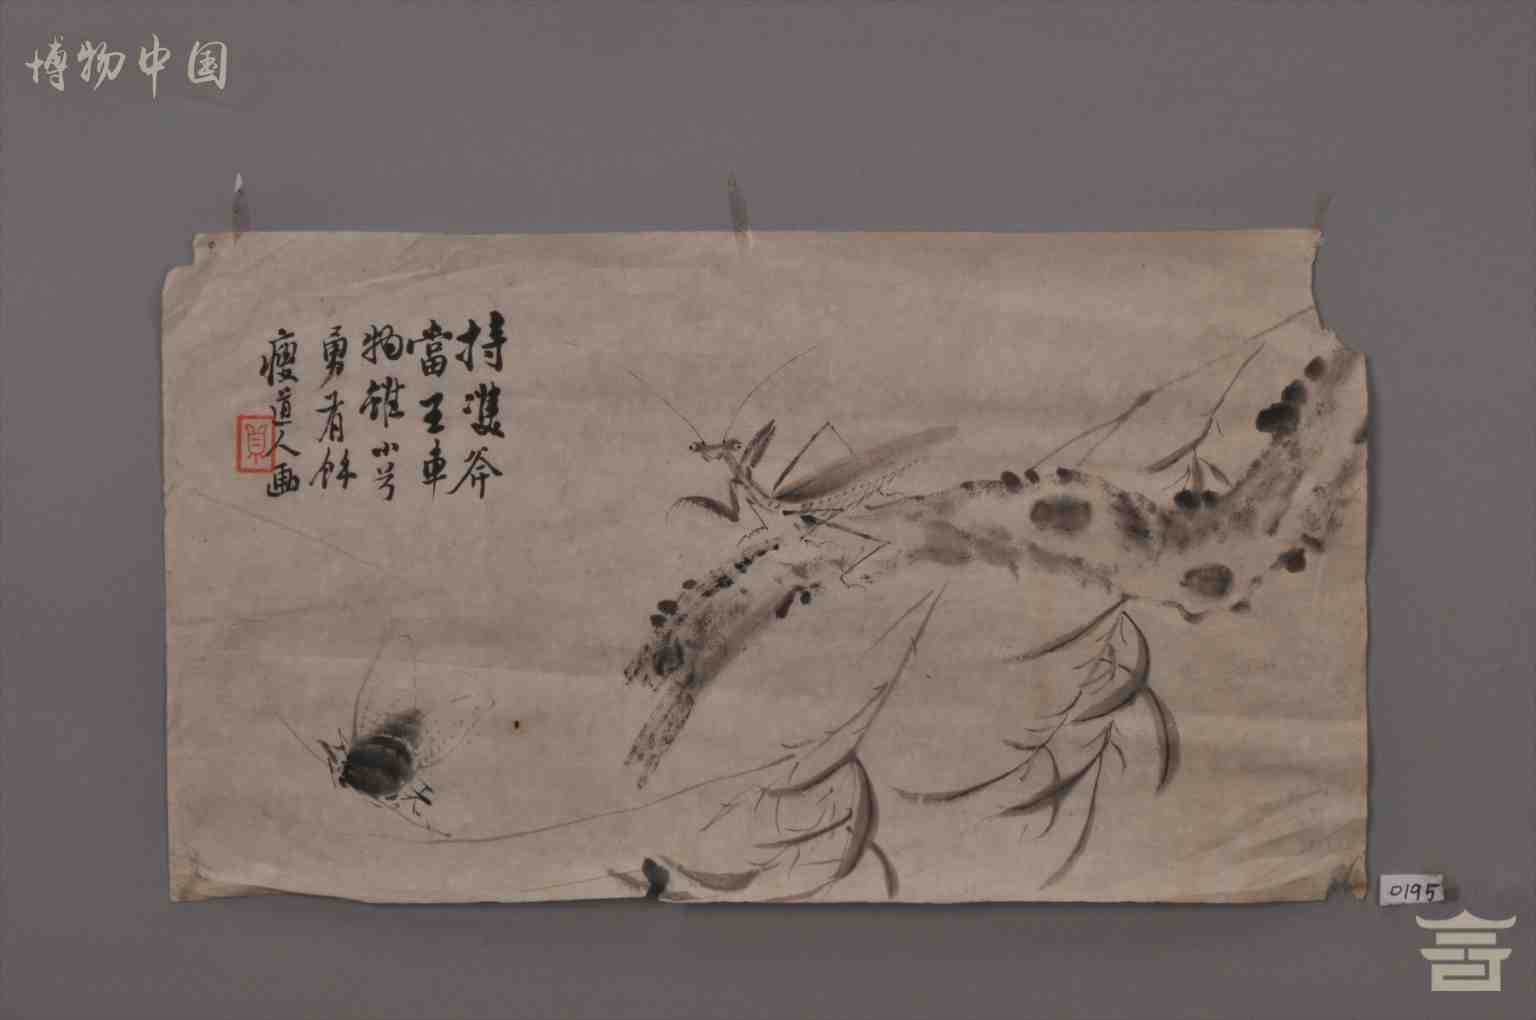 博物中国
持雙斧
當王車
物雖小兮
勇有餘
瘦道人画
0195